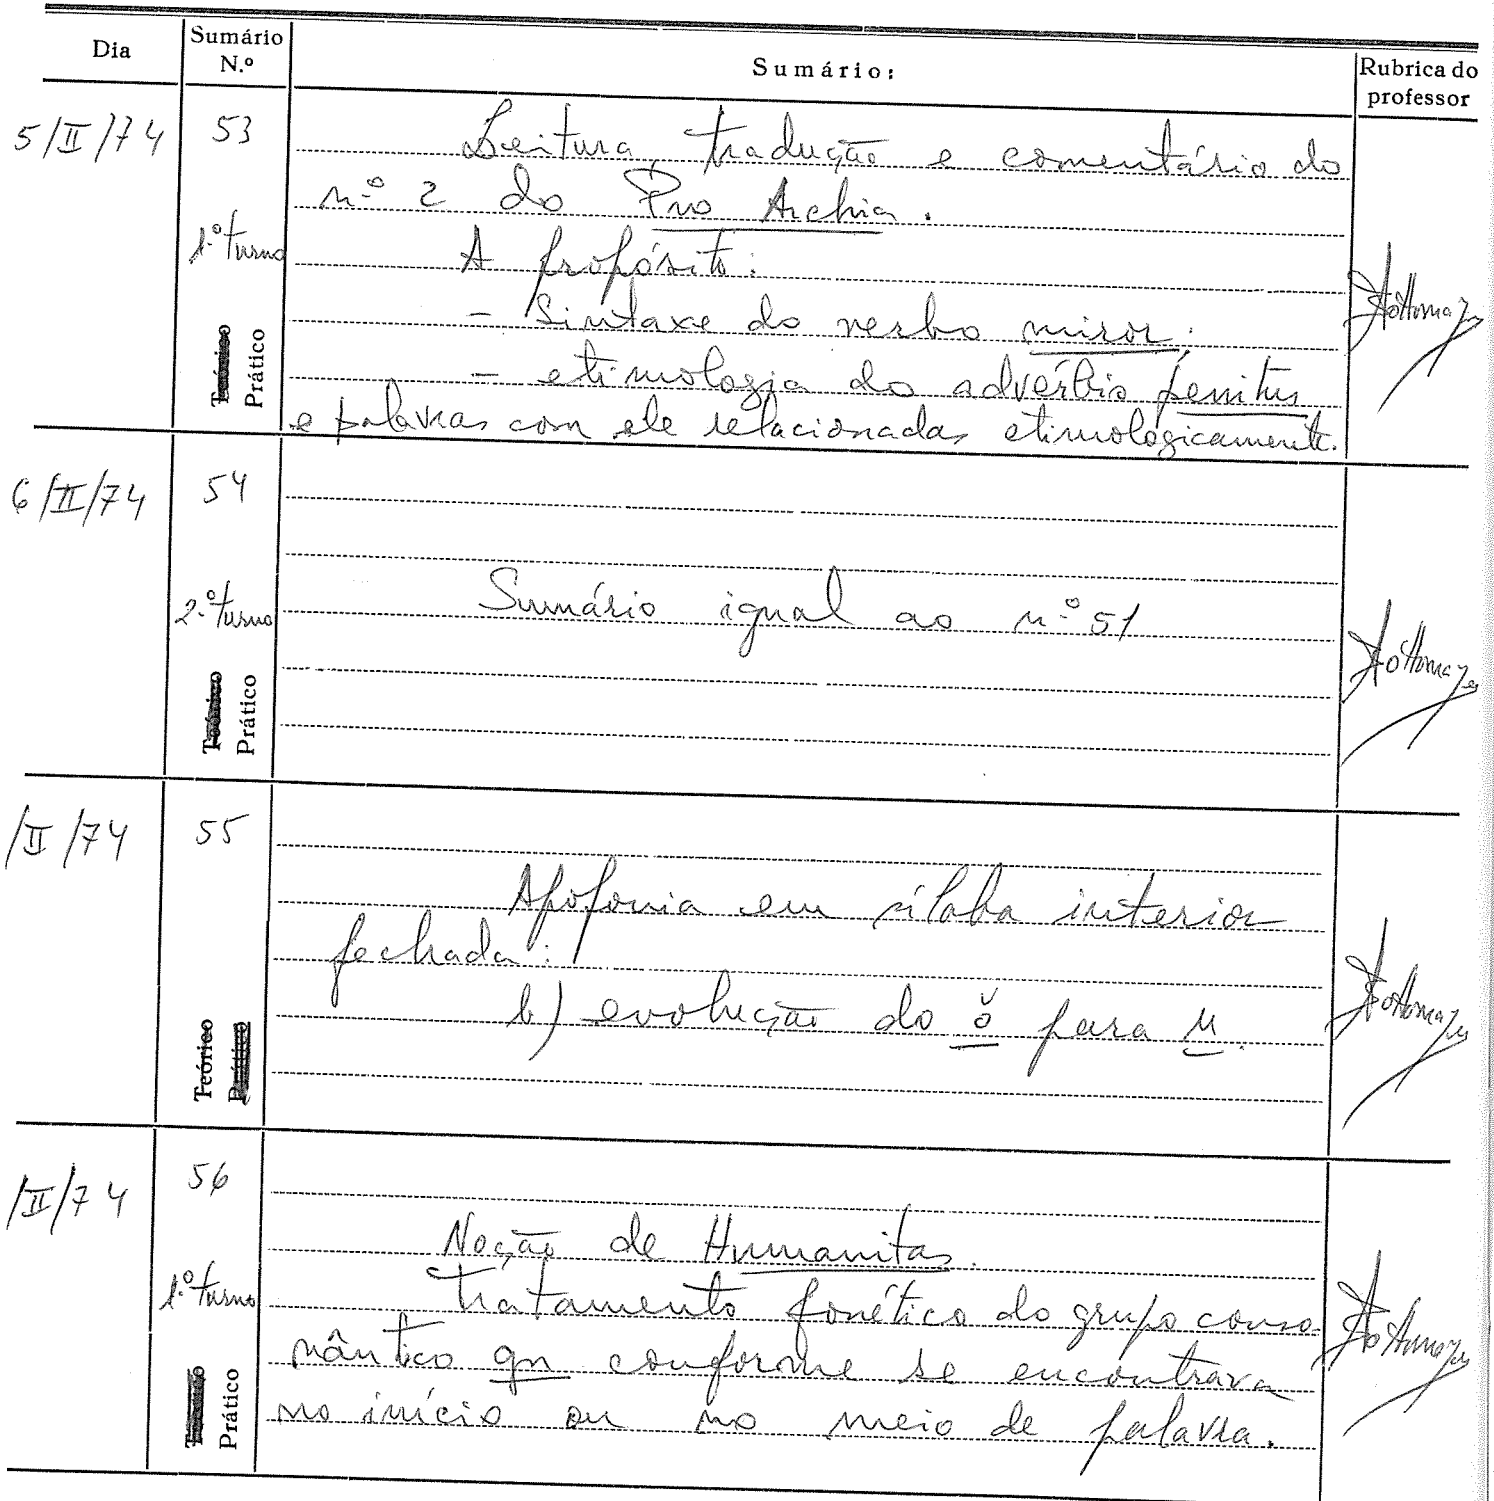 Dia
Sumário N.º
Sumário:
Rubrica do professor
5/II/74
53
1.º turno
Prático
Leitura, tradução e comentário do
n.º 2 do Pro Archia.
A propósito:
- Sintaxe do verbo miror;
- etimologia do advérbio penitus
e palavras com ele relacionadas etimològicamente.
6/II/74
54
2.º turno
Prático
Sumário igual ao n.º 51
/II/74
55
Teórico
Apofonia em sílaba interior
fechada:
b) evolução do ŏ para u.
/II/74
56
1.º turno
Prático
Noção de Humanitas.
Tratamento fonético do grupo conso
nântico gn conforme se encontrava
no início ou no meio de palavra.